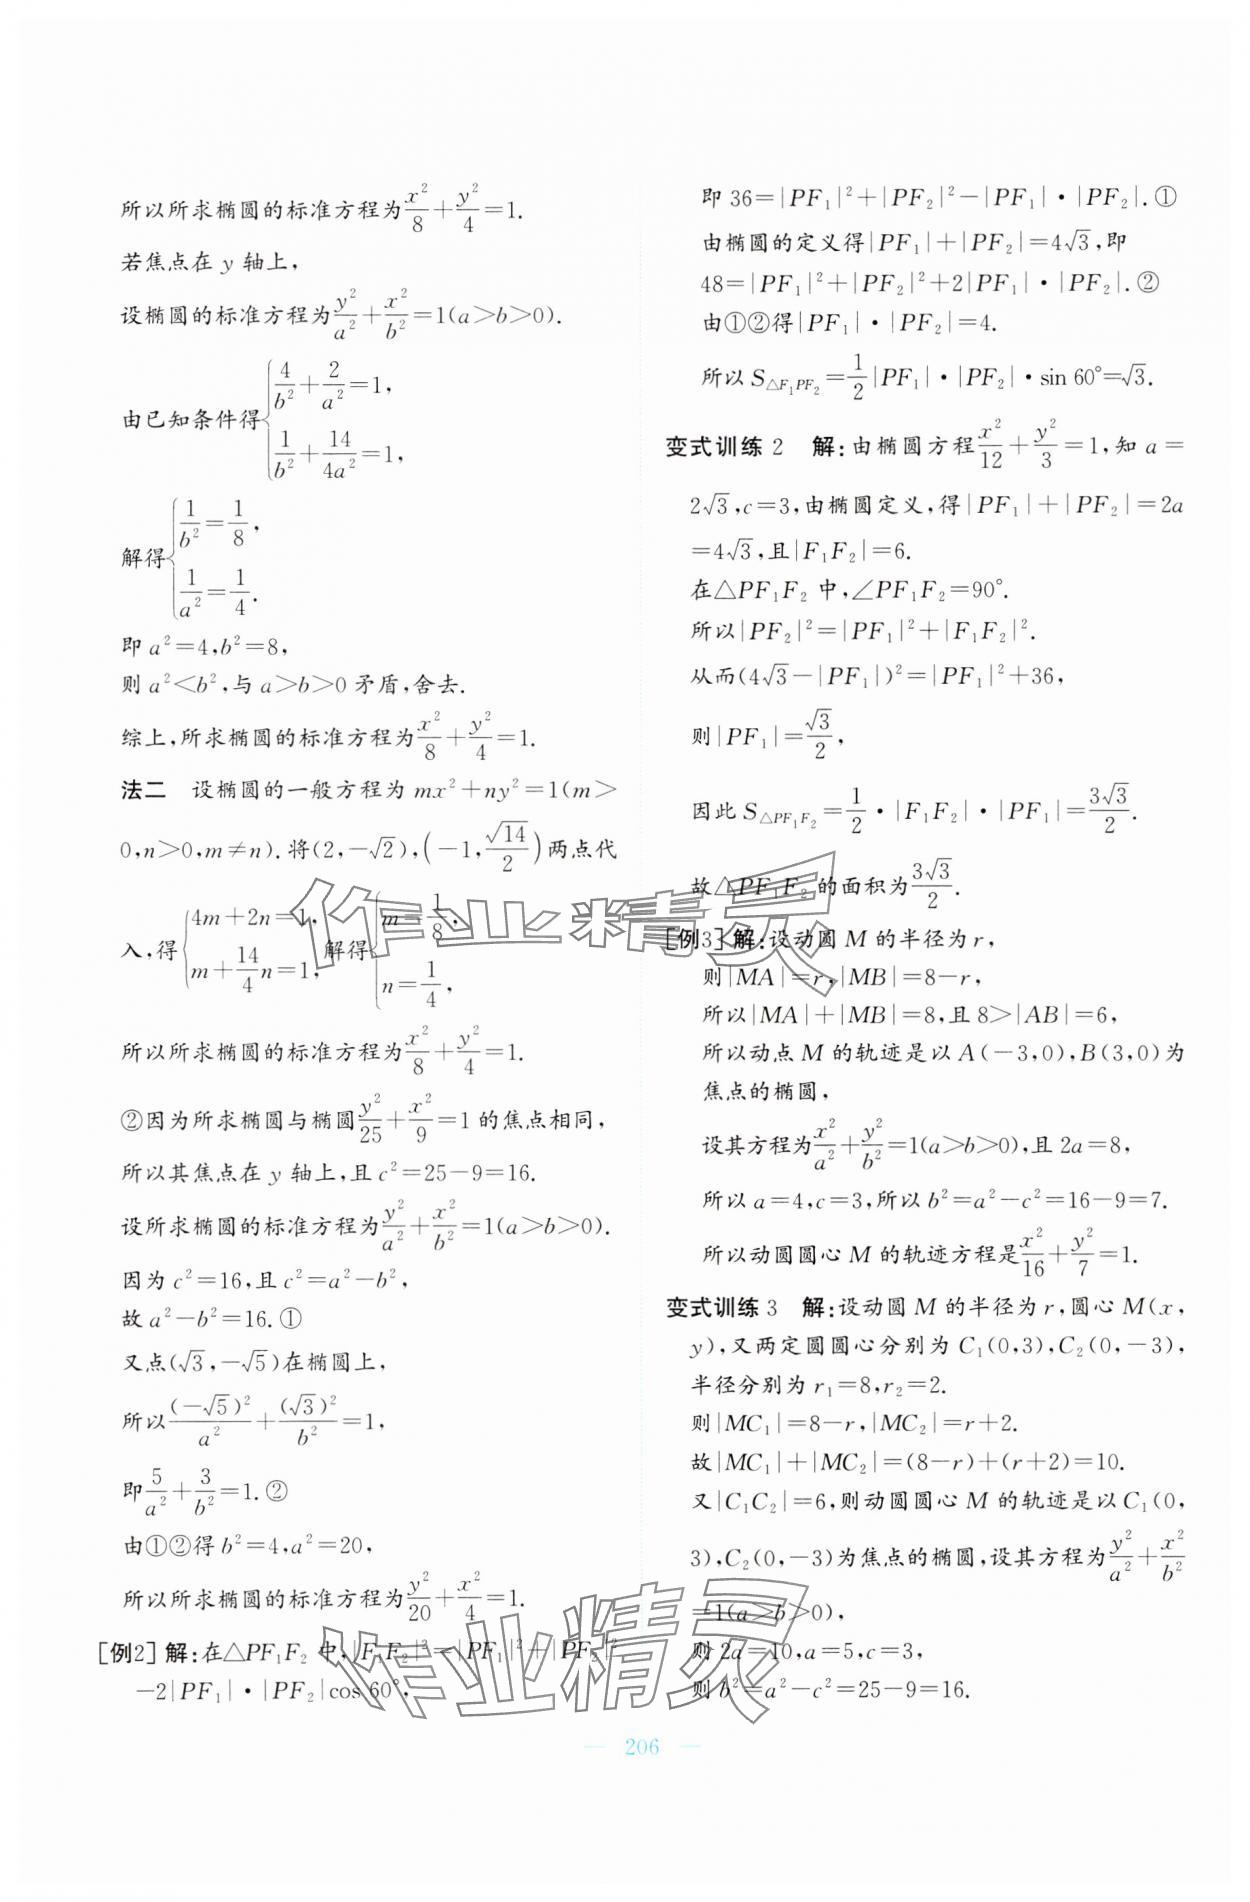 所以所求椭圆的标准方程为x²/8+y²/4=1.
若焦点在 y 轴上,
设椭圆的标准方程为y²/a²+x²/b²=1(a>b>0).
由已知条件得{4/b²+2/a²=1,
1/b²+14/4a²=1,
解得{1/b²=1/8,
1/a²=1/4.
即 a²=4,b²=8,
则 a²<b²,与 a>b>0 矛盾,舍去.
综上,所求椭圆的标准方程为x²/8+y²/4=1.
法二 设椭圆的一般方程为 mx²+ny²=1(m>
0,n>0,m≠n).将(2,-√2),(-1,√14/2)两点代
入,得{4m+2n=1, m+14/4n=1, 解得{m=1/8, n=1/4,
所以所求椭圆的标准方程为x²/8+y²/4=1.
②因为所求椭圆与椭圆y²/25+x²/9=1 的焦点相同,
所以其焦点在 y 轴上,且 c²=25-9=16.
设所求椭圆的标准方程为y²/a²+x²/b²=1(a>b>0).
因为 c²=16,且 c²=a²-b²,
故 a²-b²=16.①
又点(√3,-√5)在椭圆上,
所以(-√5)²/a²+(√3)²/b²=1,
即5/a²+3/b²=1.②
由①②得 b²=4,a²=20,
所以所求椭圆的标准方程为y²/20+x²/4=1.
[例2] 解:在△PF₁F₂ 中,|F₁F₂|²=|PF₁|²+|PF₂|²
-2|PF₁|·|PF₂|cos 60°,
即 36=|PF₁|²+|PF₂|²-|PF₁|·|PF₂|.①
由椭圆的定义得|PF₁|+|PF₂|=4√3,即
48=|PF₁|²+|PF₂|²+2|PF₁|·|PF₂|.②
由①②得|PF₁|·|PF₂|=4.
所以 S△F₁PF₂=1/2|PF₁|·|PF₂|·sin 60°=√3.
变式训练 2 解:由椭圆方程x²/12+y²/3=1,知 a=
2√3,c=3,由椭圆定义,得|PF₁|+|PF₂|=2a
=4√3,且|F₁F₂|=6.
在△PF₁F₂ 中,∠PF₁F₂=90°.
所以|PF₂|²=|PF₁|²+|F₁F₂|².
从而(4√3-|PF₁|)²=|PF₁|²+36,
则|PF₁|=√3/2,
因此 S△PF₁F₂=1/2·|F₁F₂|·|PF₁|=3√3/2.
故△PF₁F₂ 的面积为3√3/2.
[例3] 解:设动圆 M 的半径为 r,
则|MA|=r,|MB|=8-r,
所以|MA|+|MB|=8,且 8>|AB|=6,
所以动点 M 的轨迹是以 A(-3,0),B(3,0)为
焦点的椭圆,
设其方程为x²/a²+y²/b²=1(a>b>0),且 2a=8,
所以 a=4,c=3,所以 b²=a²-c²=16-9=7.
所以动圆圆心 M 的轨迹方程是x²/16+y²/7=1.
变式训练 3 解:设动圆 M 的半径为 r,圆心 M(x,
y),又两定圆圆心分别为 C₁(0,3),C₂(0,-3),
半径分别为 r₁=8,r₂=2.
则|MC₁|=8-r,|MC₂|=r+2.
故|MC₁|+|MC₂|=(8-r)+(r+2)=10.
又|C₁C₂|=6,则动圆圆心 M 的轨迹是以 C₁(0,
3),C₂(0,-3)为焦点的椭圆,设其方程为y²/a²+x²/b²
=1(a>b>0),
则 2a=10,a=5,c=3,
则 b²=a²-c²=25-9=16.
— 206 —
作业精灵
作业精灵